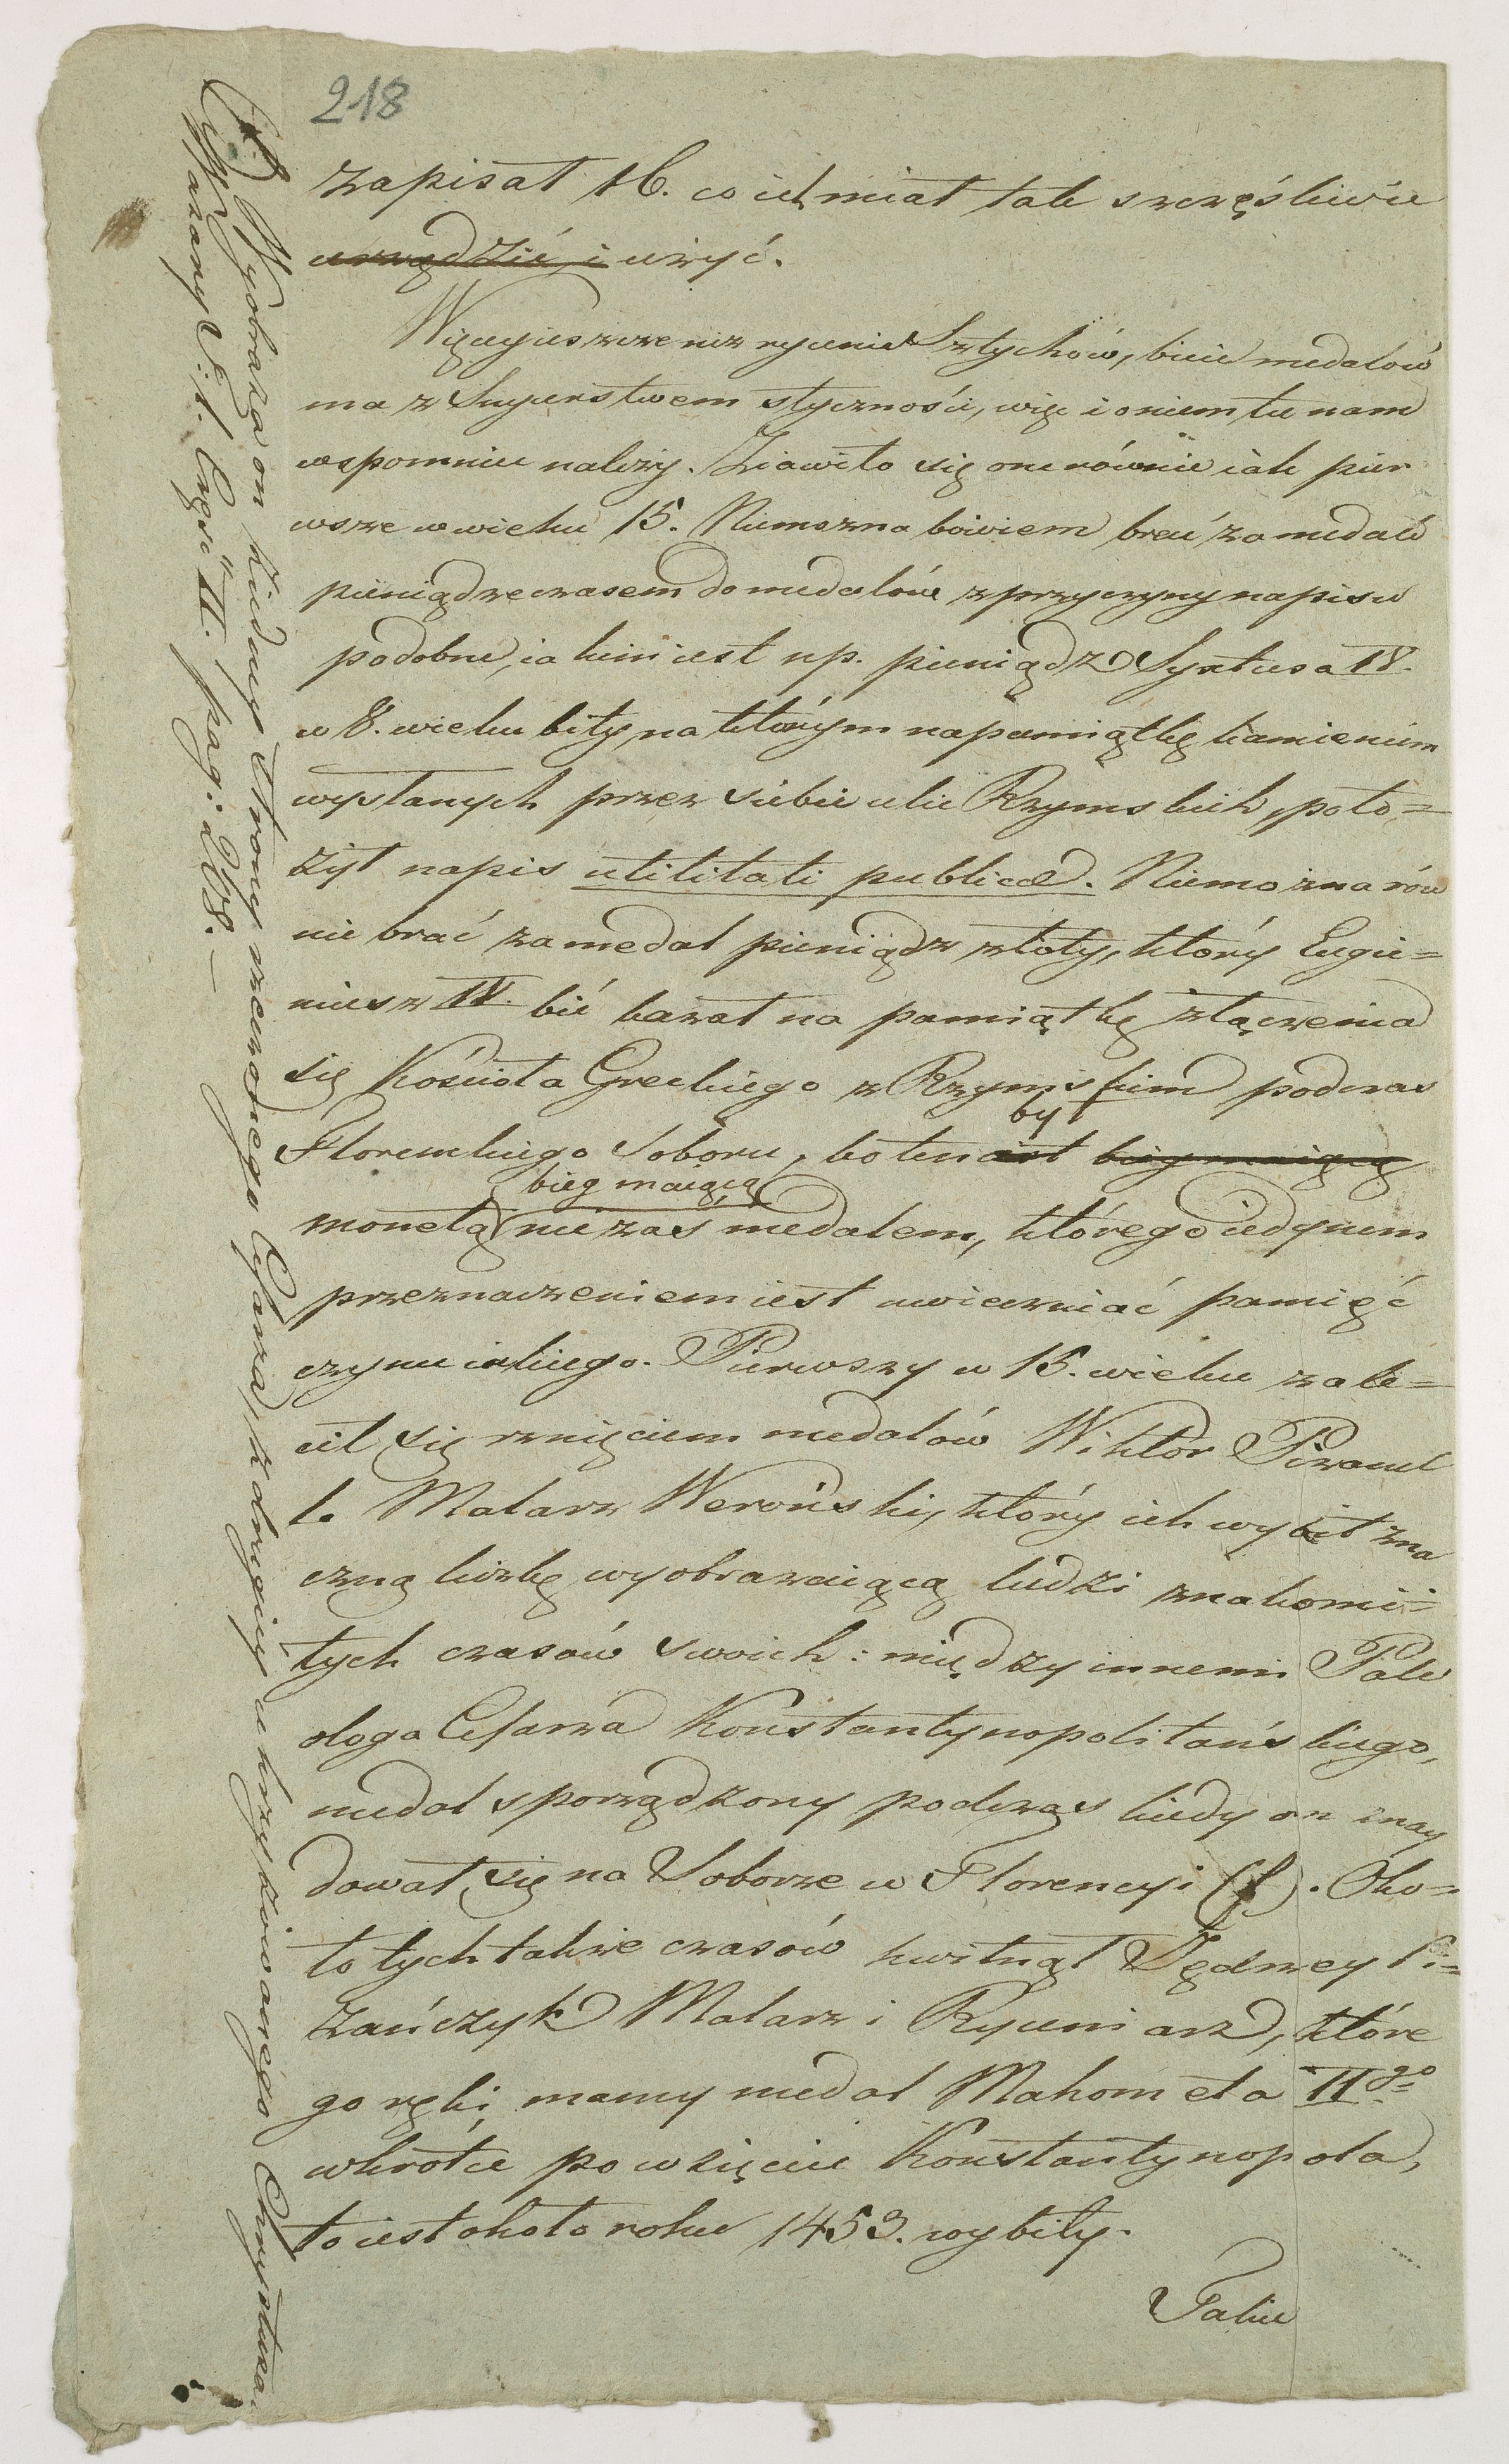 218
zapisał 16. co ich miał tak szczęśliwie
urządzić i użyć.
Więcey ieszcze niż rycinie Sztychów, bicie medalów
ma z Snycerstwem styczności, więc i o niem tu nam
wspomnieć należy. Ziawiło się one równie iak pier
wsze w wieku 15. Niemożna bowiem brać za medale
pieniądze czasem do medalów z przyczyny napisu
podobne, iakim iest np. pieniądz Syxtusa IV.
w 8. wieku bity, na którym na pamiątkę kamieniem
wysłanych przez siebie ulic Rzymskich, poło=
żył napis utilitati publicae. Niemożna rów
nie brać za medal pieniądz złoty, który Eugie=
niusz IV. bić kazał na pamiątkę złączenia
się Kościoła Greckiego z Rzymskim podczas
by
Florenckiego Soboru, bo ten iest bieg maiącą
bieg maiącą
monetą nie zaś medalem, którego iedynem
przeznaczeniem iest uwieczniać pamięć
czynu iakiego. Pierwszy w 15. wieku zale=
cił się rznięciem medalów Wiktor Pizanel
l. Malarz Weroński, który ich wybił zna
czną liczbę wyobrażaiącą ludzi znakomi=
tych czasów swoich: między innemi Pale
ologa Cesarza Konstantynopolitańskiego,
medal sporządzony podczas kiedy on znay
dował się na Soborze w Florencyi (f). Oko=
ło tych także czasów kwitnął Jędrzey Pi=
zańczyk Malarz i Ryceniarz, które
go ręki mamy medal Mahometa II<sup>go</sup>
wkrótce po wzięciu Konstantynopola,
to iest około roku 1453. wybity.
Takie
(f) Wyobraża on z iedney strony rzeczonego Cesarza, z drugiey ukrzyżowanego Chrystusa.
pag: 268. —